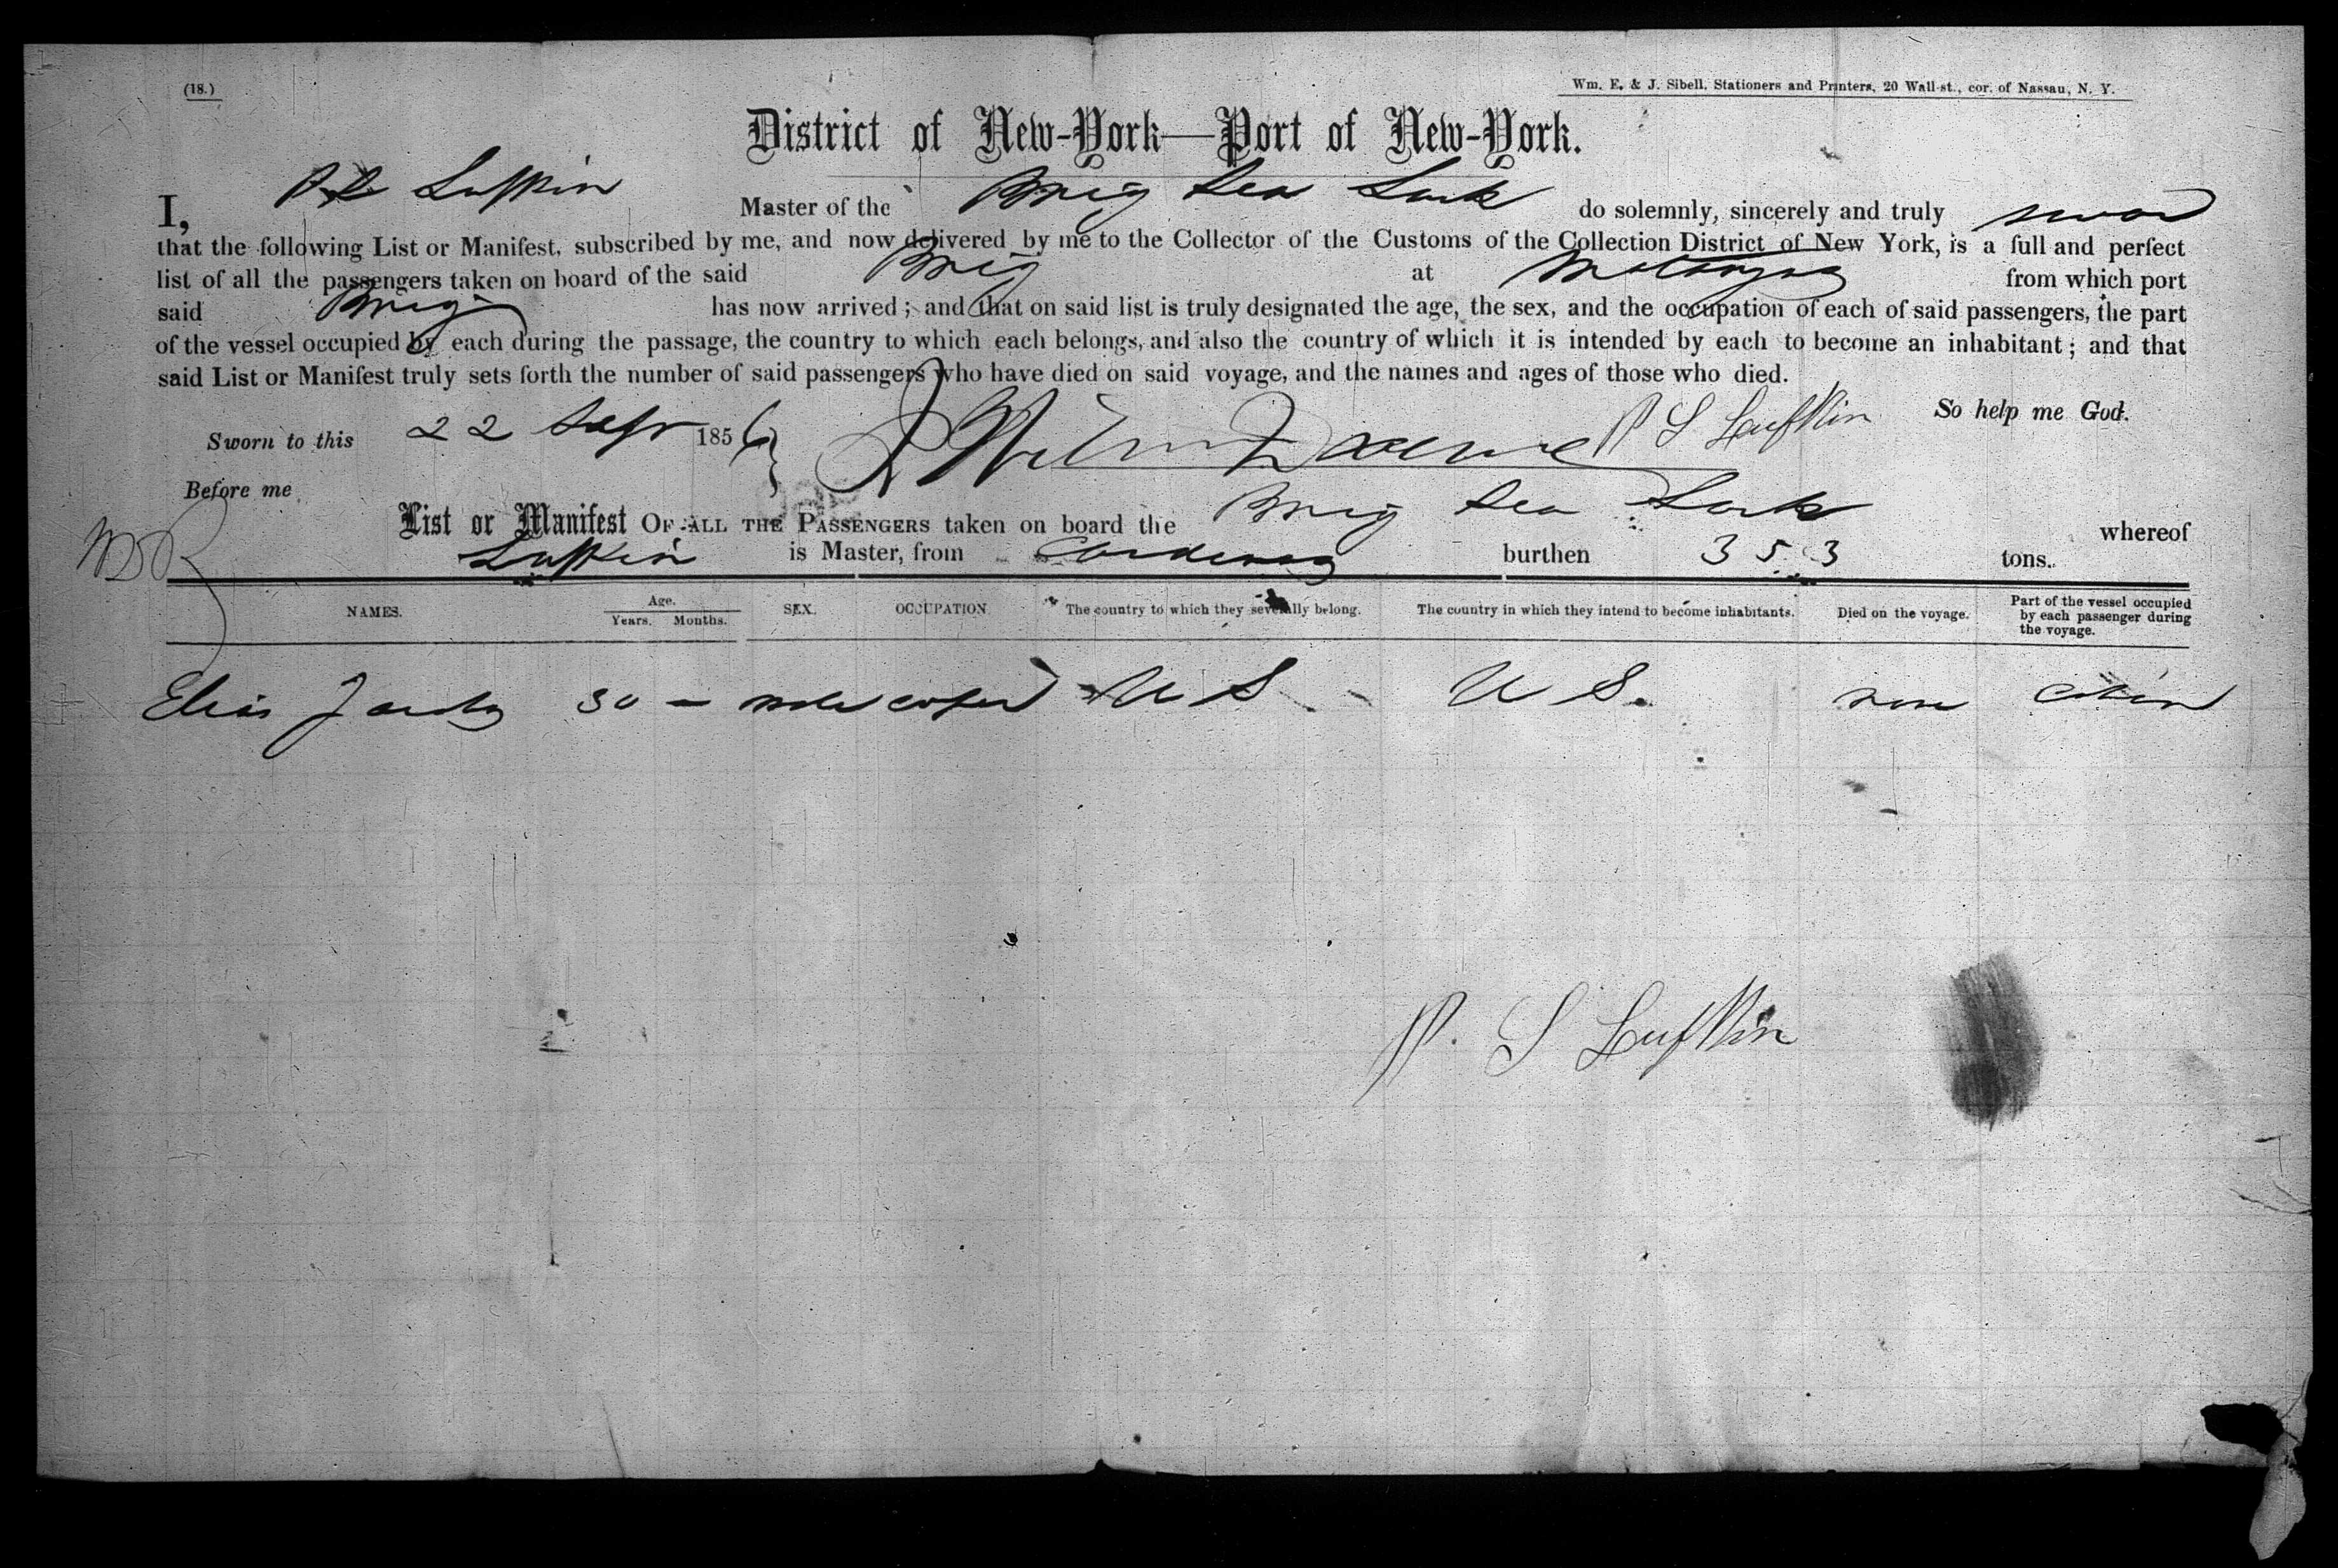 (18.)
Wm. E. & J. Sibell, Stationers and Printers, 20 Wall-st., cor. of Nassau, N. Y.
District of New-York—Port of New-York.
I, P S Lufkin Master of the Brig Sea Lark do solemnly, sincerely and truly swear
that the following List or Manifest, subscribed by me, and now delivered by me to the Collector of the Customs of the Collection District of New York, is a full and perfect
list of all the passengers taken on board of the said Brig at Matanzas from which port
said Brig has now arrived; and that on said list is truly designated the age, the sex, and the occupation of each of said passengers, the part
of the vessel occupied by each during the passage, the country to which each belongs, and also the country of which it is intended by each to become an inhabitant; and that
said List or Manifest truly sets forth the number of said passengers who have died on said voyage, and the names and ages of those who died.
Sworn to this 22 Sepr 1856 P S Lufkin So help me God.
Before me
List or Manifest OF ALL THE PASSENGERS taken on board the Brig Sea Lark whereof
Lufkin is Master, from Cardenas burthen 353 tons.
NAMES. Age. Years. Months. SEX. OCCUPATION. The country to which they severally belong. The country in which they intend to become inhabitants. Died on the voyage. Part of the vessel occupied by each passenger during the voyage.
Elias 30 – male U S U S. none cabin
P. S Lufkin